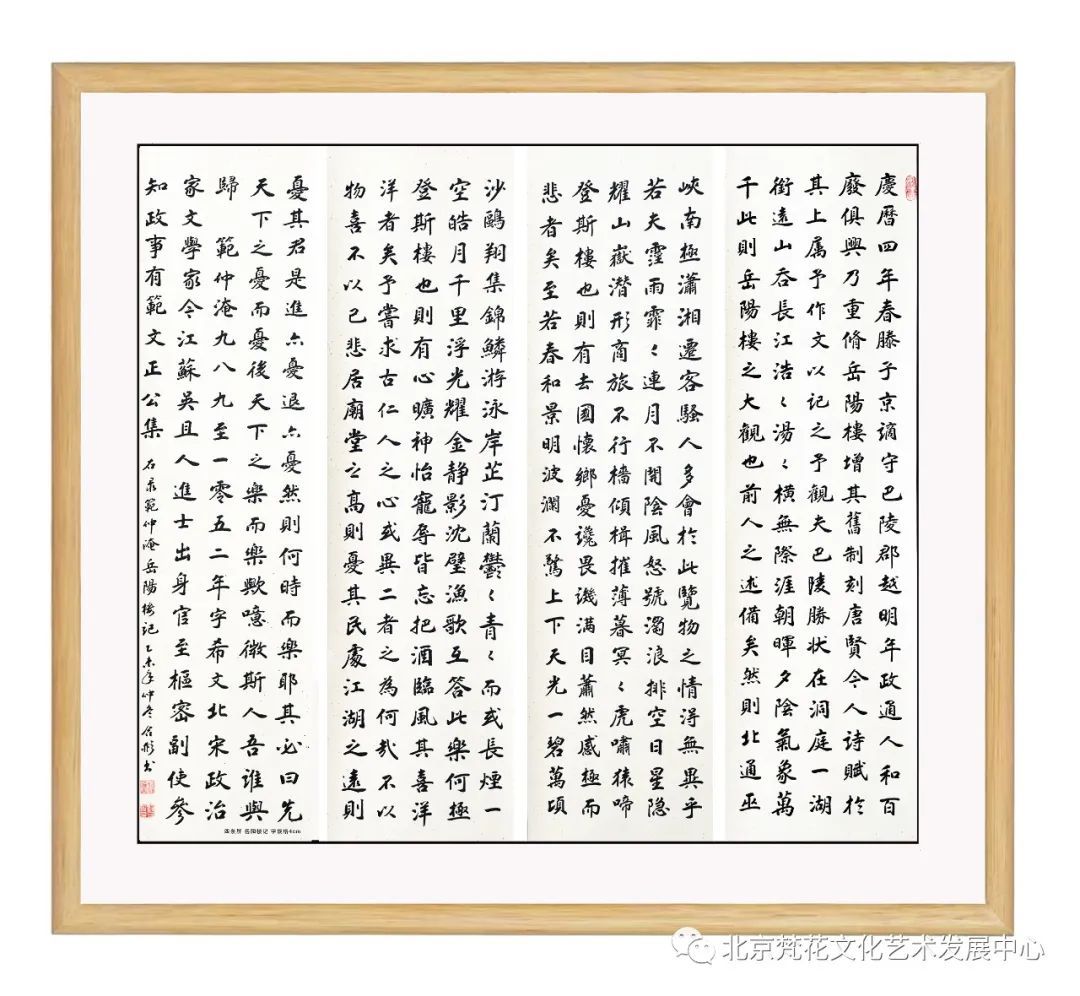 慶曆四年春滕子京謫守巴陵郡越明年政通人和百
廢俱興乃重脩岳陽樓增其舊制刻唐賢今人詩賦於
其上属予作文以記之予觀夫巴陵勝状在洞庭一湖
銜遠山吞長江浩〻湯〻橫無際涯朝暉夕陰氣象萬
千此則岳陽樓之大觀也前人之述備矣然則北通巫
峽南極瀟湘遷客騷人多會於此覽物之情得無異乎
若夫霪雨霏〻連月不開陰風怒號濁浪排空日星隐
耀山嶽潛形商旅不行檣傾楫摧薄暮冥〻虎嘯猿啼
登斯樓也則有去國懷鄉憂讒畏譏满目蕭然感極而
悲者矣至若春和景明波瀾不驚上下天光一碧萬頃
沙鷗翔集錦鱗游泳岸芷汀蘭鬱〻青〻而或長煙一
空皓月千里浮光耀金静影沈璧漁歌互答此樂何極
登斯樓也則有心曠神怡寵辱皆忘把酒臨風其喜洋
洋者矣予嘗求古仁人之心或異二者之為何哉不以
物喜不以己悲居廟堂之高則憂其民處江湖之遠則
憂其君是進亦憂退亦憂然則何時而樂耶其必曰先
天下之憂而憂後天下之樂而樂歟噫微斯人吾誰與
歸 範仲淹九八九至一零五二年字希文北宋政治
家文學家今江蘇吳且人進士出身官至樞密副使參
知政事有範文正公集 右录範仲淹岳陽楼記 乙未年仲冬 书
条屏 岳阳楼记 字规格4cm
北京梵花文化艺术发展中心